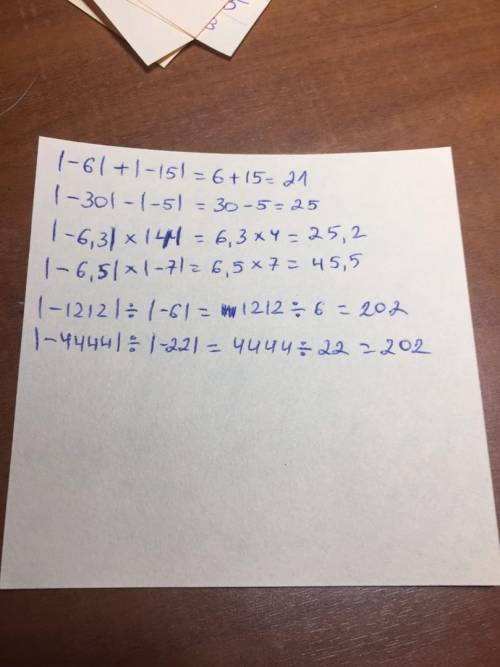 |-6|+|-15|=6+15=21
|-30|-|-5|=30-5=25
|-6,3|×|4|=6,3×4=25,2
|-6,5|×|-7|=6,5×7=45,5
|-1212|÷|-6|=1212÷6=202
|-4444|÷|-22|=4444÷22=202